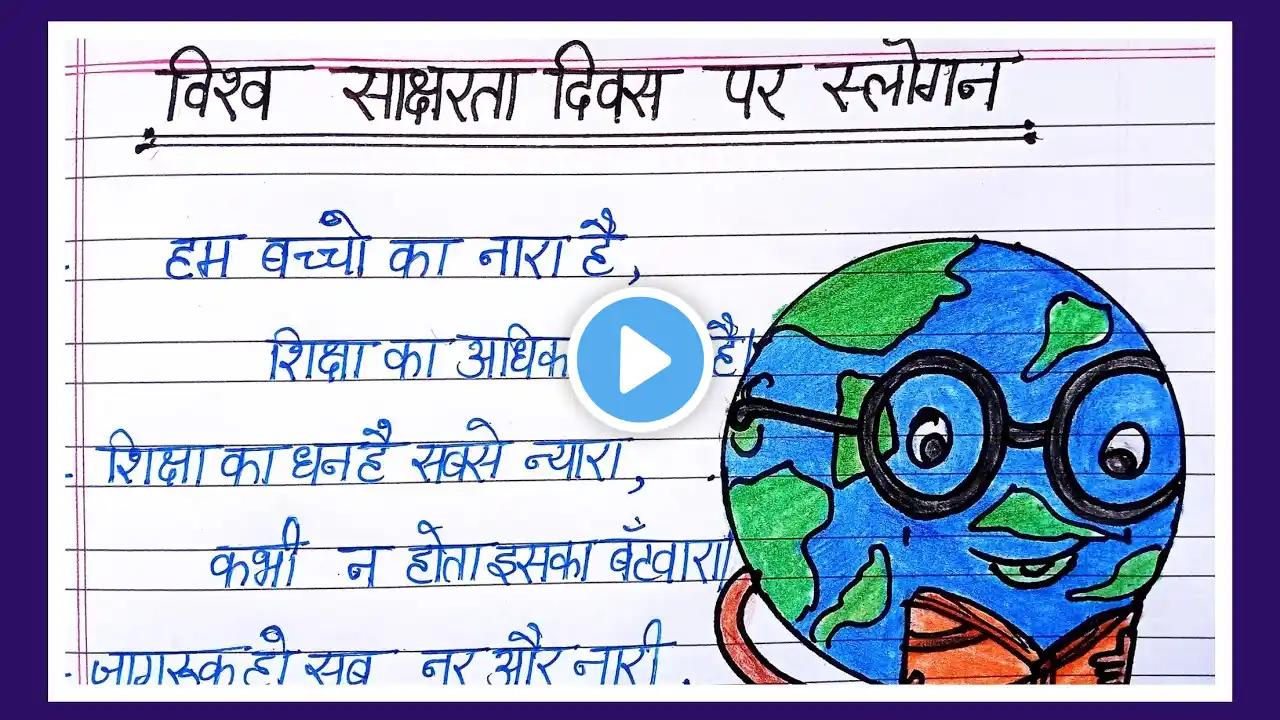 विश्व साक्षरता दिवस पर स्लोगन
हम बच्चों का नारा है,
शिक्षा का अधिक है।
शिक्षा का धन है सबसे न्यारा,
कभी न होता इसका बँटवारा।
जागरूक हो सब नर और नारी,